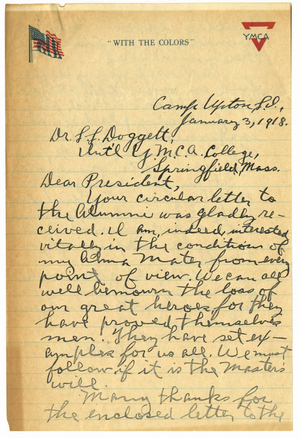 "WITH THE COLORS"
YMCA
Camp Upton L.I.,
January 3, 1918.
Dr. L. L. Doggett,
Int'l Y.M.C.A. College,
Springfield, Mass.
Dear President,
Your circular letter to
the Alumni was gladly re-
ceived. I am, indeed, interested
vitally in the condition of
my Alma Mater from every
point of view. We can all
well bemourn the loss of
our great heroes for they
have proved themselves
men. They have set ex-
amples for us all. We must
follow if it is the Masters
will.
Many thanks for
the enclosed letter to the